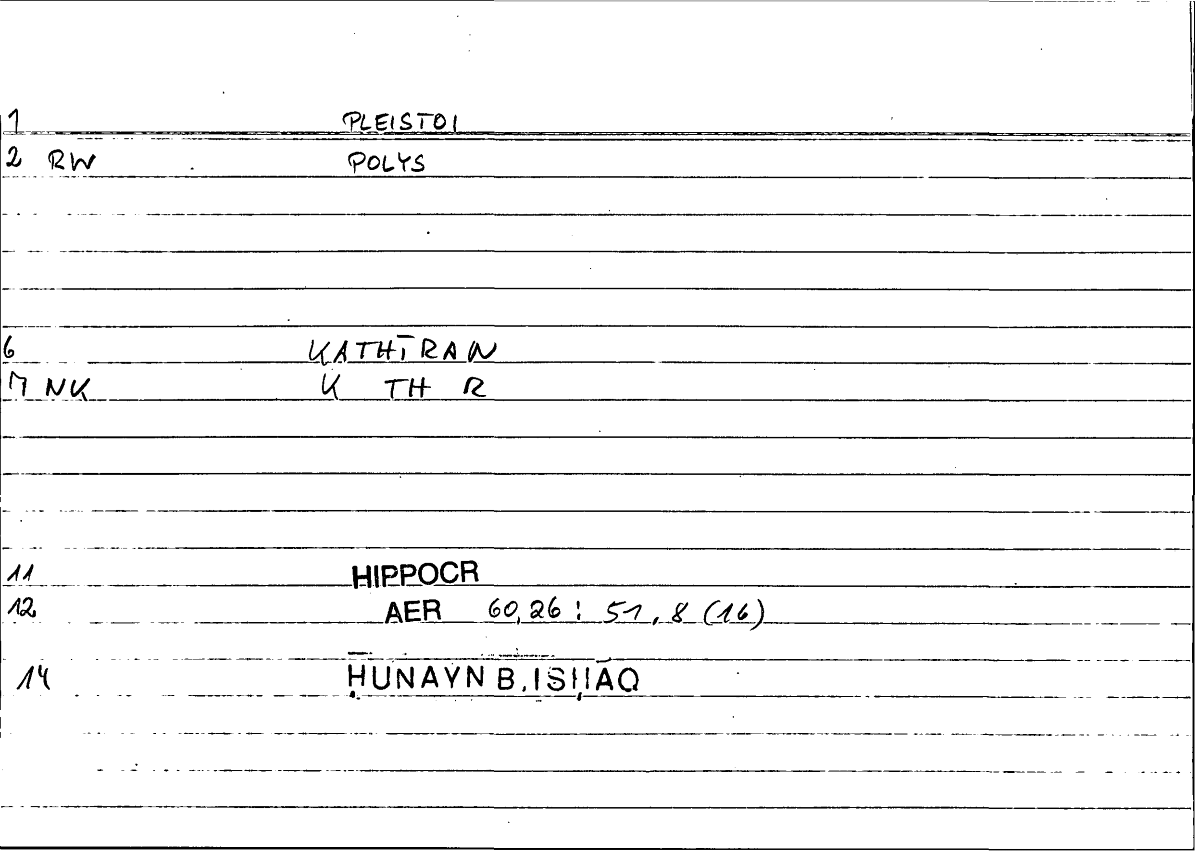 1 PLEISTOI
2 RW POLYS
6 KATHĪRAN
7 NK K TH R
11 HIPPOCR
12 AER 60,26 : 51,8 (16)
14 ḤUNAYN B. ISḤĀQ